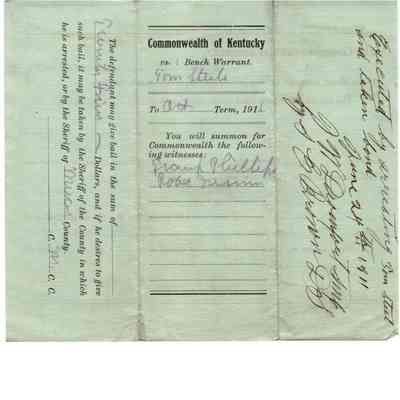 The defendant may give bail in the sum of
Twenty Five Dollars, and if he desires to give
such bail, it may be taken by the Sheriff of the County in which
he is arrested, or by the Sheriff of County.
C. M. C. C.
Commonwealth of Kentucky
vs. } Bench Warrant.
Tom Steele
To Oct Term, 191
You will summon for
Commonwealth the follow-
ing witnesses:
Frank Phillips
Executed by arresting Tom Steel
and taken bond
June 24 1911
by Brown D.S.